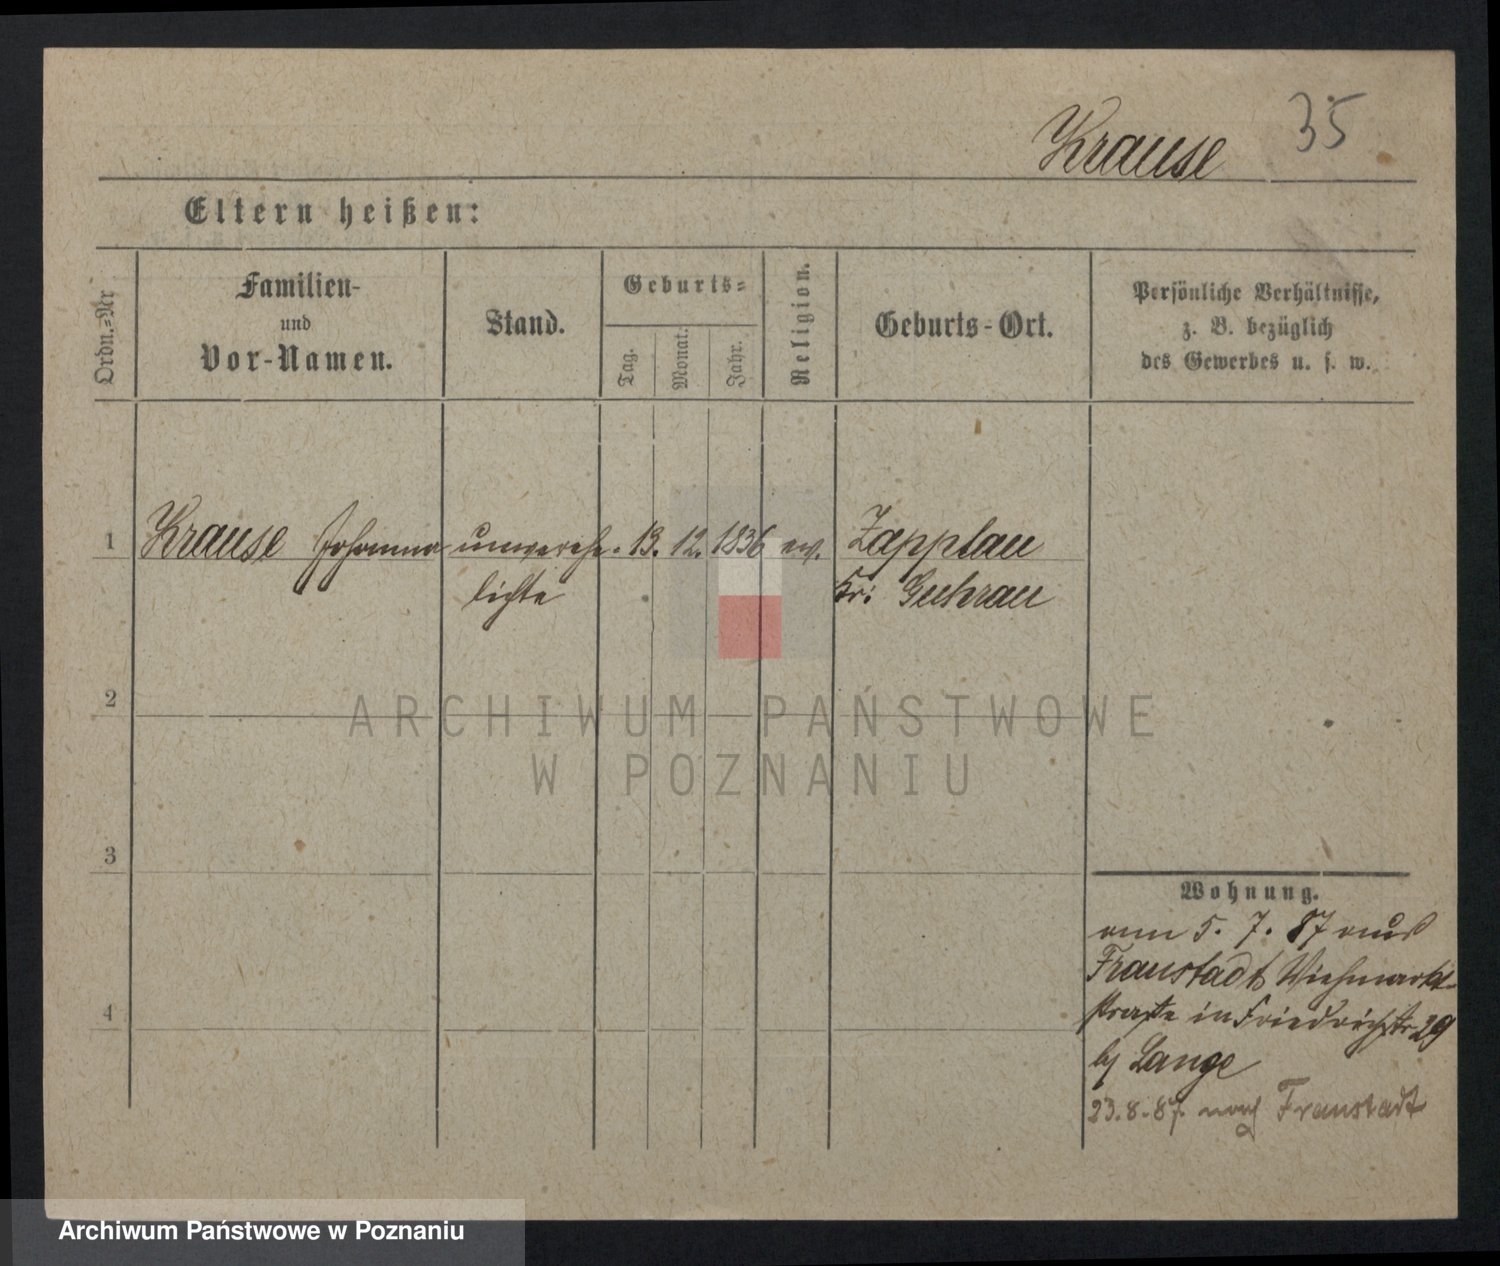 Krause 35
Eltern heißen:
Ordn.=Nr
Familien-
und
Vor-Namen.
Stand.
Geburts=
Tag.
Monat.
Jahr.
Religion.
Geburts-Ort.
Persönliche Verhältnisse,
z. B. bezüglich
des Gewerbes u. s. w.
1 Krause Johanna unverehe- 13. 12. 1836 ev. Zapplau
lichte Kr: Guhrau
2
ARCHIWUM PAŃSTWOWE
W POZNANIU
3
Wohnung.
5. 7. 87 aus
Fraustadt Viehmarkt-
straße in Friedrichstr 29
bj Lange
4
23.8.87. nach Fraustadt
Archiwum Państwowe w Poznaniu